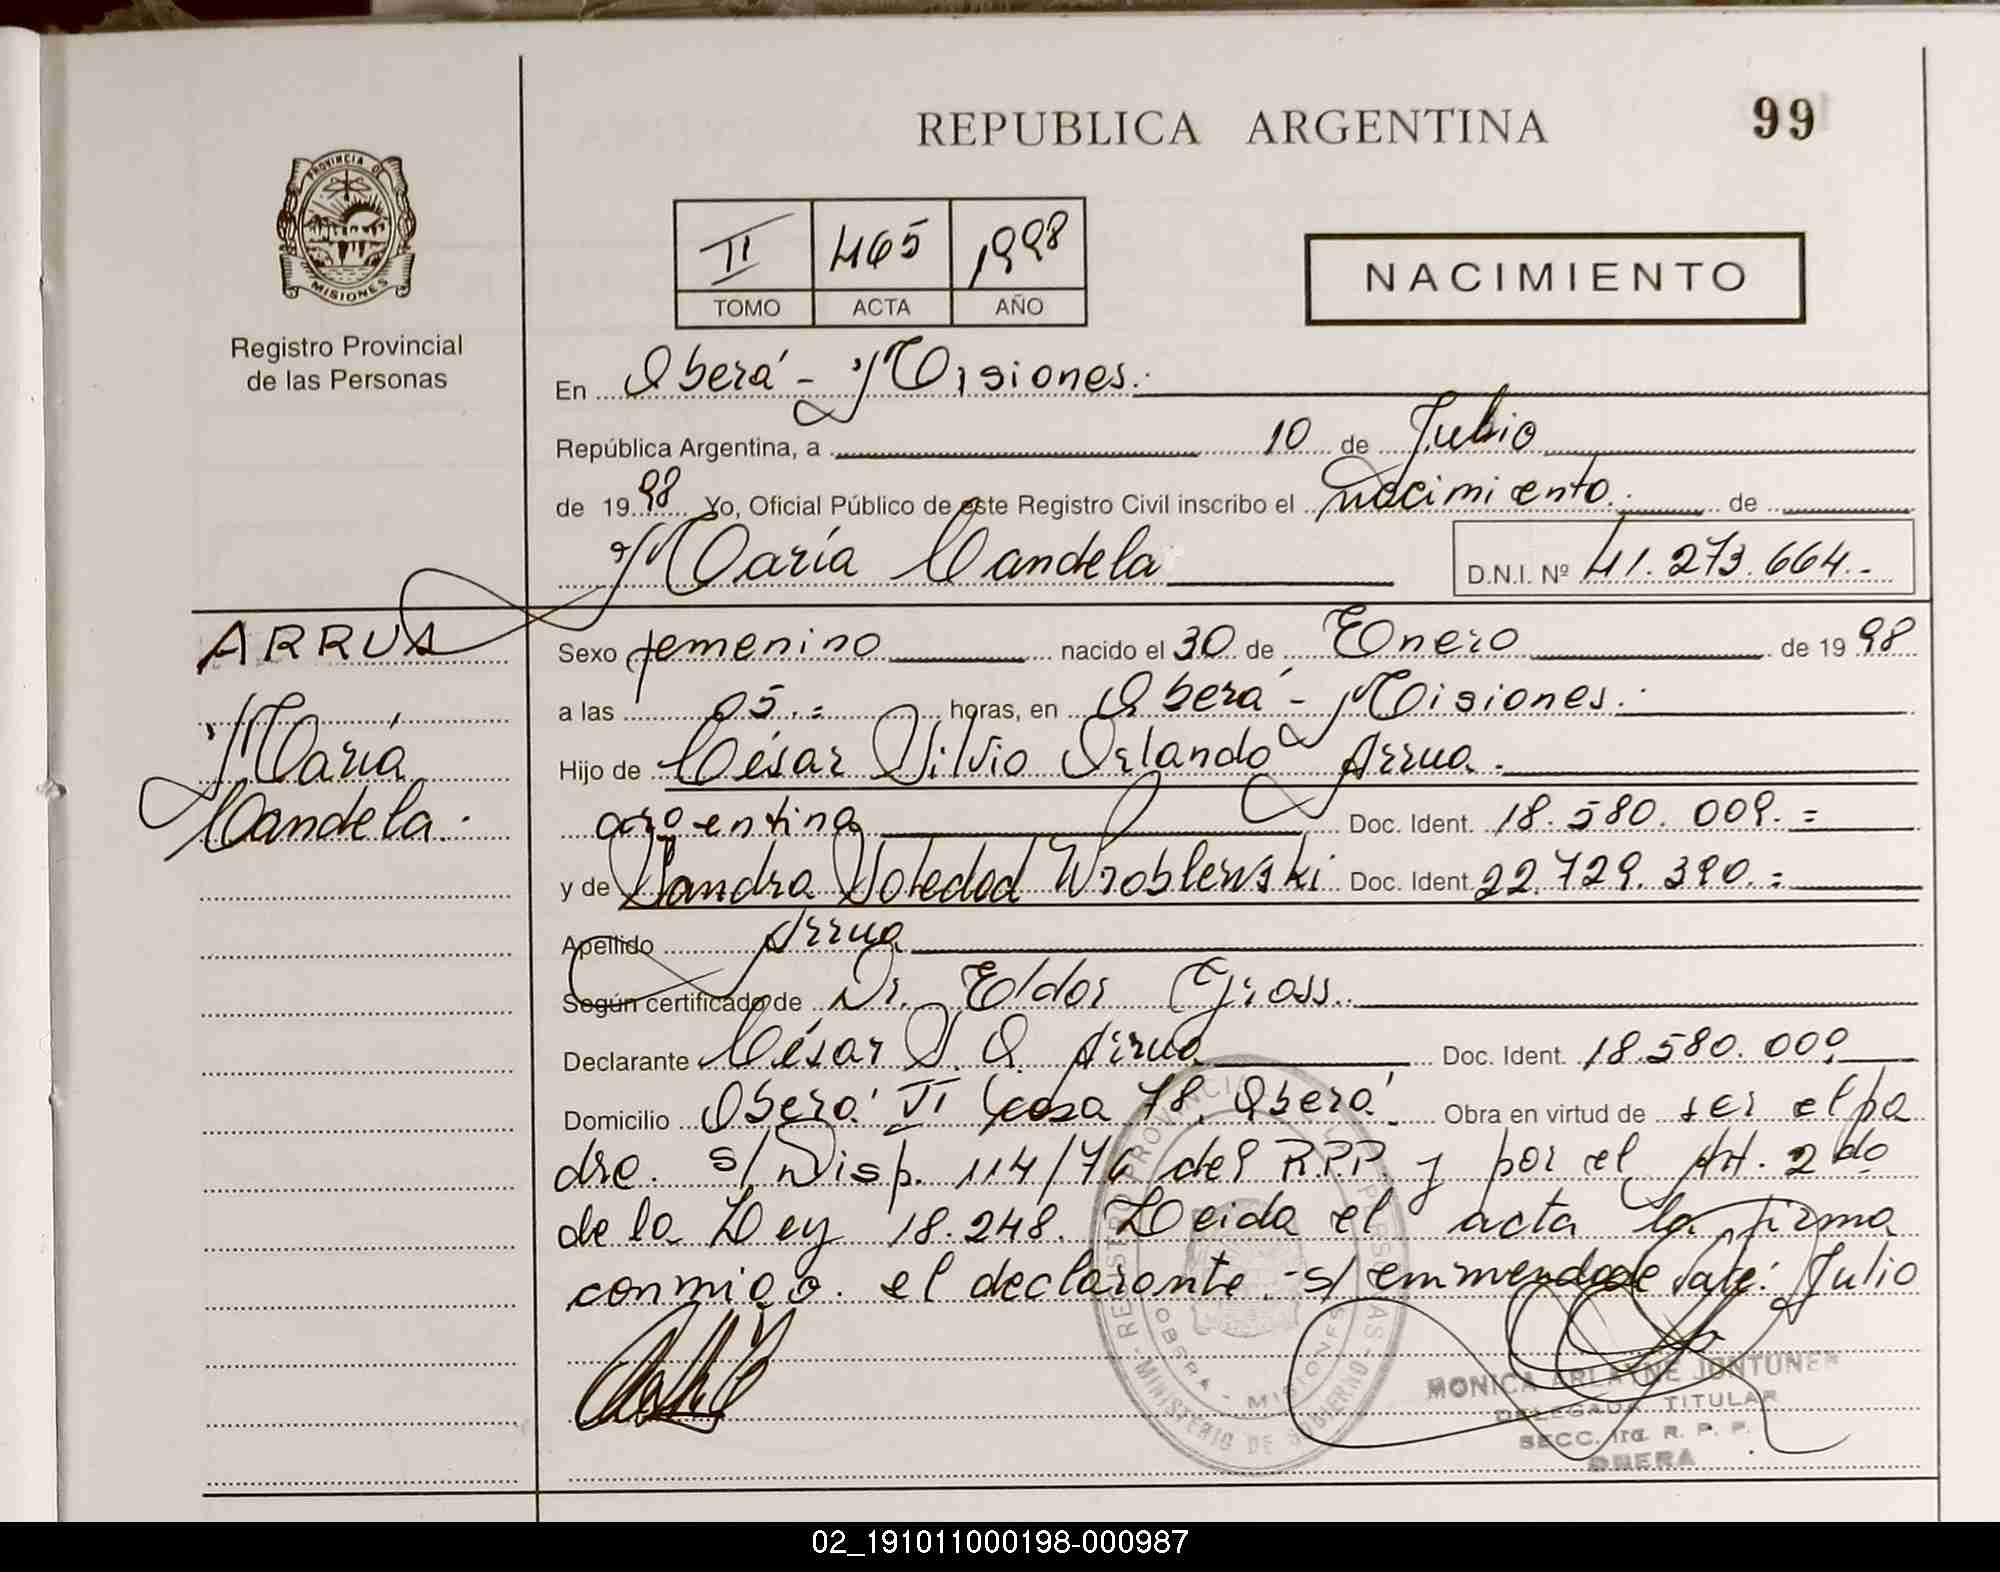 REPUBLICA ARGENTINA
99
PROVINCIA DE
MISIONES
Registro Provincial
de las Personas
II 465 1998
TOMO ACTA AÑO
NACIMIENTO
En Oberá - Misiones.
República Argentina, a 10 de Julio
de 1998 Yo, Oficial Público de este Registro Civil inscribo el nacimiento. de
María Candela
D.N.I. Nº 41.273.664.-
ARRUA
María
Candela.
Sexo femenino nacido el 30 de Enero de 1998
a las 05.= horas, en Oberá - Misiones.
Hijo de César Silvio Orlando Arrua.
argentina Doc. Ident. 18.580.009.=
y de Sandra Soledad Wroblewski Doc. Ident. 22.729.390.=
Apellido Arrua
Según certificado de Dr. Eldor Gross.
Declarante César S. O. Arrua Doc. Ident. 18.580.009
Domicilio Oberá VI casa 78. Oberá. Obra en virtud de ser el pa
dre. s/ Disp. 114/76 del R.P.P. y por el Art. 2do
de la Ley 18.248. Leida el acta la firma
conmigo. el declarante.- s/ emmendado Vale: Julio
REGISTRO PROVINCIAL DE LAS PERSONAS
OBERA - MISIONES
MINISTERIO DE GOBIERNO
MONICA ARLAYNE JONTUNEN
DELEGADA TITULAR
SECC. 1ra. R. P. P.
OBERA
02_191011000198-000987